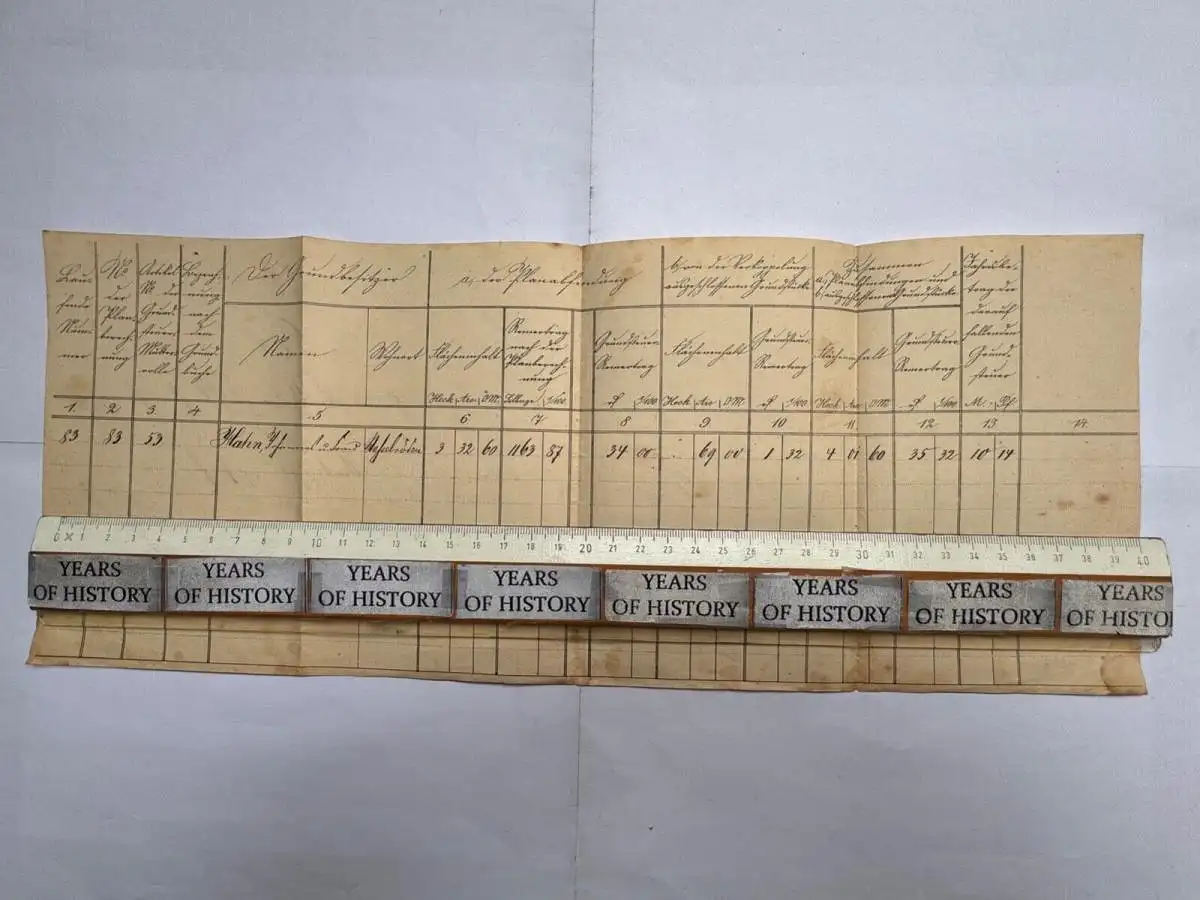 Lau-
fende
Num-
mer
No
der
Plan-
berech-
nung
Artikel
No der
Grund-
steuer-
Mutter-
rolle
Bezeich-
nung
nach
dem
Grund-
buche
Der Grundbesitzer
Namen
Wohnort
a, der Planabfindung
Flächeninhalt
Heck. Are □M
Reinertrag
nach der
Planberech-
nung
1/100
Grundsteuer-
Reinertrag
1/100
b, von der Verkoppelung
ausgeschlossenen Grundstücke
Flächeninhalt
Heck. Are □M
Grundsteuer-
Reinertrag
1/100
Zusammen
a, Planabfindungen und
b, ausgeschlossene Grundstücke
Flächeninhalt
Heck. Are □M
Grundsteuer-
Reinertrag
1/100
Jahresbe-
trag der
darauf
fallenden
Grund-
steuer
M. Pf
1. 2 3. 4 5 6 7 8 9 10 11. 12 13 14
83 83 53 Hahn, 3 32 60 1163 87 34 00 . 69 00 1 32 4 01 60 35 32 10 14
0 1 2 3 4 5 6 7 8 9 10 11 12 13 14 15 16 17 18 19 20 21 22 23 24 25 26 27 28 29 30 31 32 33 34 35 36 37 38 39 40
YEARS OF HISTORY
YEARS OF HISTORY
YEARS OF HISTORY
YEARS OF HISTORY
YEARS OF HISTORY
YEARS OF HISTORY
YEARS OF HISTORY
YEARS OF HISTO